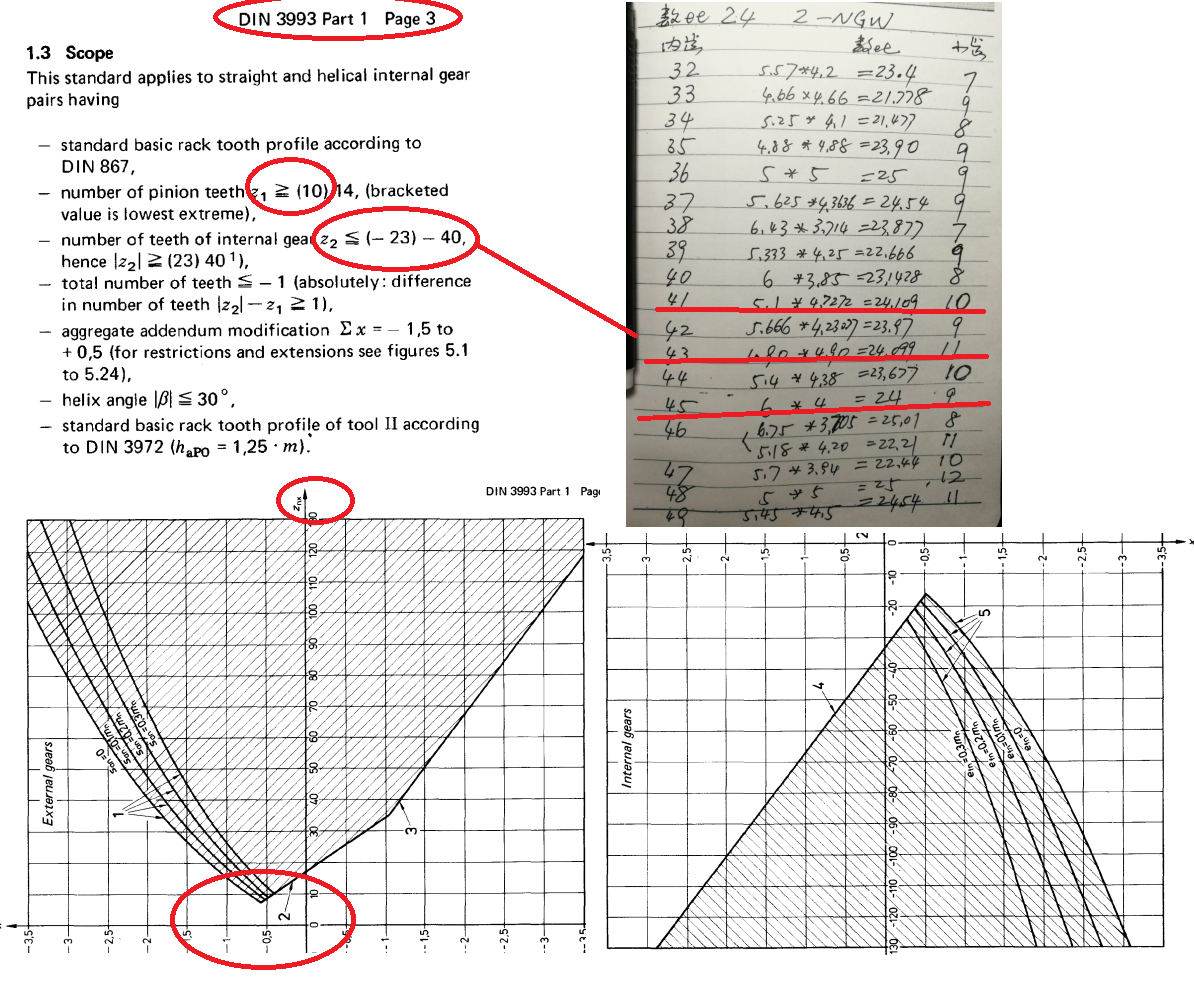 DIN 3993 Part 1 Page 3
1.3 Scope
This standard applies to straight and helical internal gear
pairs having
— standard basic rack tooth profile according to
DIN 867,
— number of pinion teeth z₁ ≧ (10) 14, (bracketed
value is lowest extreme),
— number of teeth of internal gear z₂ ≦ (− 23) − 40,
hence |z₂| ≧ (23) 40 ¹),
— total number of teeth ≦ − 1 (absolutely: difference
in number of teeth |z₂| − z₁ ≧ 1),
— aggregate addendum modification Σ x = − 1,5 to
+ 0,5 (for restrictions and extensions see figures 5.1
to 5.24),
— helix angle |β| ≦ 30°,
— standard basic rack tooth profile of tool II according
to DIN 3972 (haP0 = 1,25 · m).
24 2-NGW
32 5.57*4.2 =23.4 7
33 4.66×4.66 =21.778 9
34 5.25 * 4.1 =21,477 8
35 4.88 * 4.88 =23,90 9
36 5 * 5 =25 9
37 5.625 *4,3636 = 24.54 9
38 6.43 * 3,714 =23,877 7
39 5.333 * 4.25 =22.666 9
40 6 *3,85 =23,1428 8
41 5.1 * 4,7272 =24,109 10
42 5.666 *4,2307=23.97 9
43 4.90 *4.90 =24.099 11
44 5.4 * 4.38 =23,677 10
45 6 * 4 = 24 9
46 6.75 *3,705 =25,01 8
5.18 * 4.20 =22.21 11
47 5.7 *3,94 = 22.44 10
48 5 * 5 = 25 12
49 5.45 *4.5 = 24.54 11
DIN 3993 Part 1 Pag
External gears
znx
san=0
san=0,1mn
san=0,2mn
san=0,3mn
1
2
3
−3,5 −3 −2,5 −2 −1,5 −1 −0,5 −1 −1,5 −2 −2,5 −3 −3,5
0 10 30 40 50 60 70 80 90 100 110 120
Internal gears
4
5
efn=0,3mn
efn=0,2mn
efn=0,1mn
efn=0
3,5 3 2,5 2 1,5 1 0,5 −0,5 −1 −1,5 −2 −2,5 −3 −3,5
0 −10 −20 −40 −50 −60 −70 −80 −90 −100 −110 −120 130
x